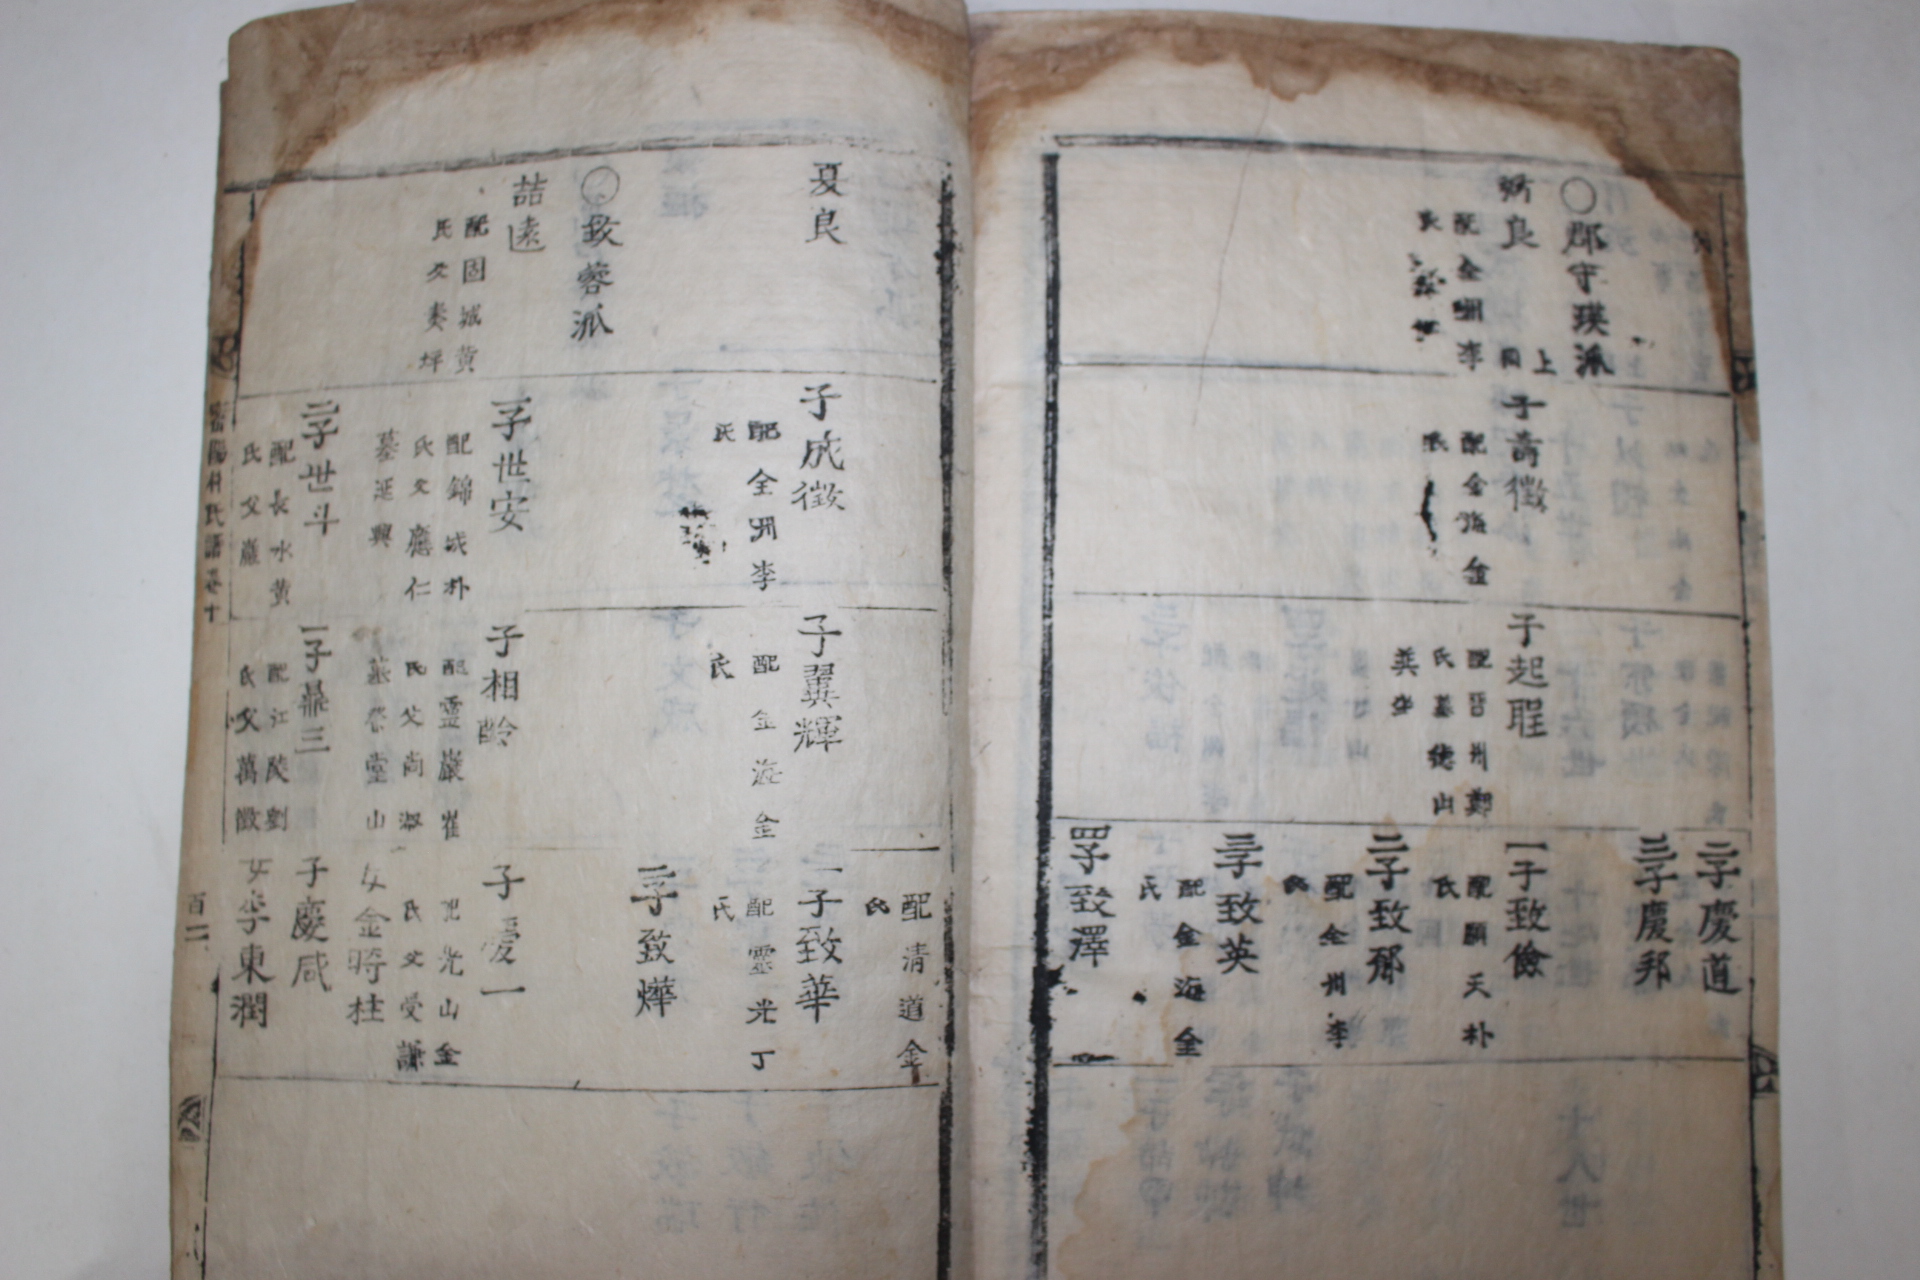 ○郡守瑛派
良
配全州李
氏
上
子壽徵
配金海金
氏
子起程
配晉州鄭
氏墓德山
二子慶道
三子慶邦
一子致儉
配順天朴
氏
二子致郁
配全州李
氏
三子致英
配金海金
氏
四子致澤
夏良
子成徵
配全州李
氏
子翼輝
配金海金
氏
配清道金
氏
一子致華
配靈光丁
氏
二子致燁
○致蓉派
喆遠
配固城黃
氏父奏坪
一子世安
配錦城朴
氏父應仁
墓延興
二子世斗
配長水黃
氏父巖
子相齡
配靈巖崔
氏父尚淑
墓祭堂山
一子鼎三
配江陵劉
氏父萬徵
子愛一
配光山金
氏父受謙
女金時桂
子慶咸
女李東潤
密陽朴氏譜卷十
百二